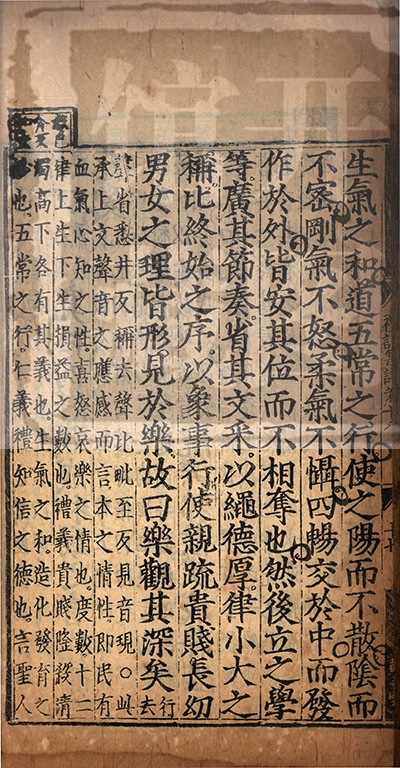 生氣之和道五常之行使之陽而不散陰而
不密剛氣不怒柔氣不懾四暢交於中而發
作於外皆安其位而不相奪也然後立之學
等廣其節奏省其文采以繩德厚律小大之
稱比終始之序以象事行使親疏貴賤長幼
男女之理皆形見於樂故曰樂觀其深矣行去
聲省悉井反稱去聲比毗至反見音現○此
承上文聲音之應感而言本之情性即民有
血氣心知之性喜怒哀樂之情也度數十二
律上生下生損益之數也禮義貴賤隆殺清
濁高下各有其義也生氣之和造化發育之
妙也五常之行仁義禮知信之德也言聖人